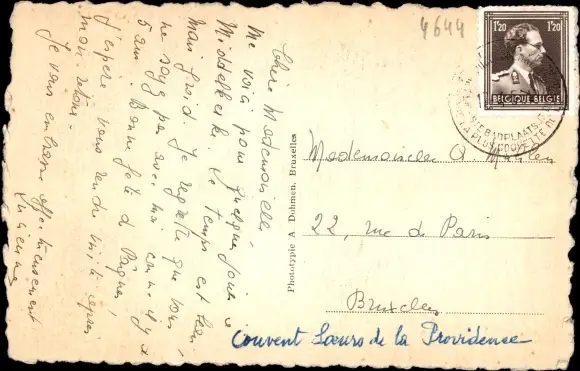 4644
1F20 1F20
BELGIQUE BELGIE
Chère Mademoiselle,
Me voici pour quelques jours à
Middelkerke. Le temps est beau,
mais froid. Je regrette que vous
ne soyez pas avec moi comme il y a
5 ans. Bonne fête de Pâques,
J'espère vous rendre visite après
mon retour.
Je vous embrasse affectueusement
Phototypie A Dohmen, Bruxelles
Mademoiselle
22, rue de Paris
Bruxelles
Couvent Sœurs de la Providence